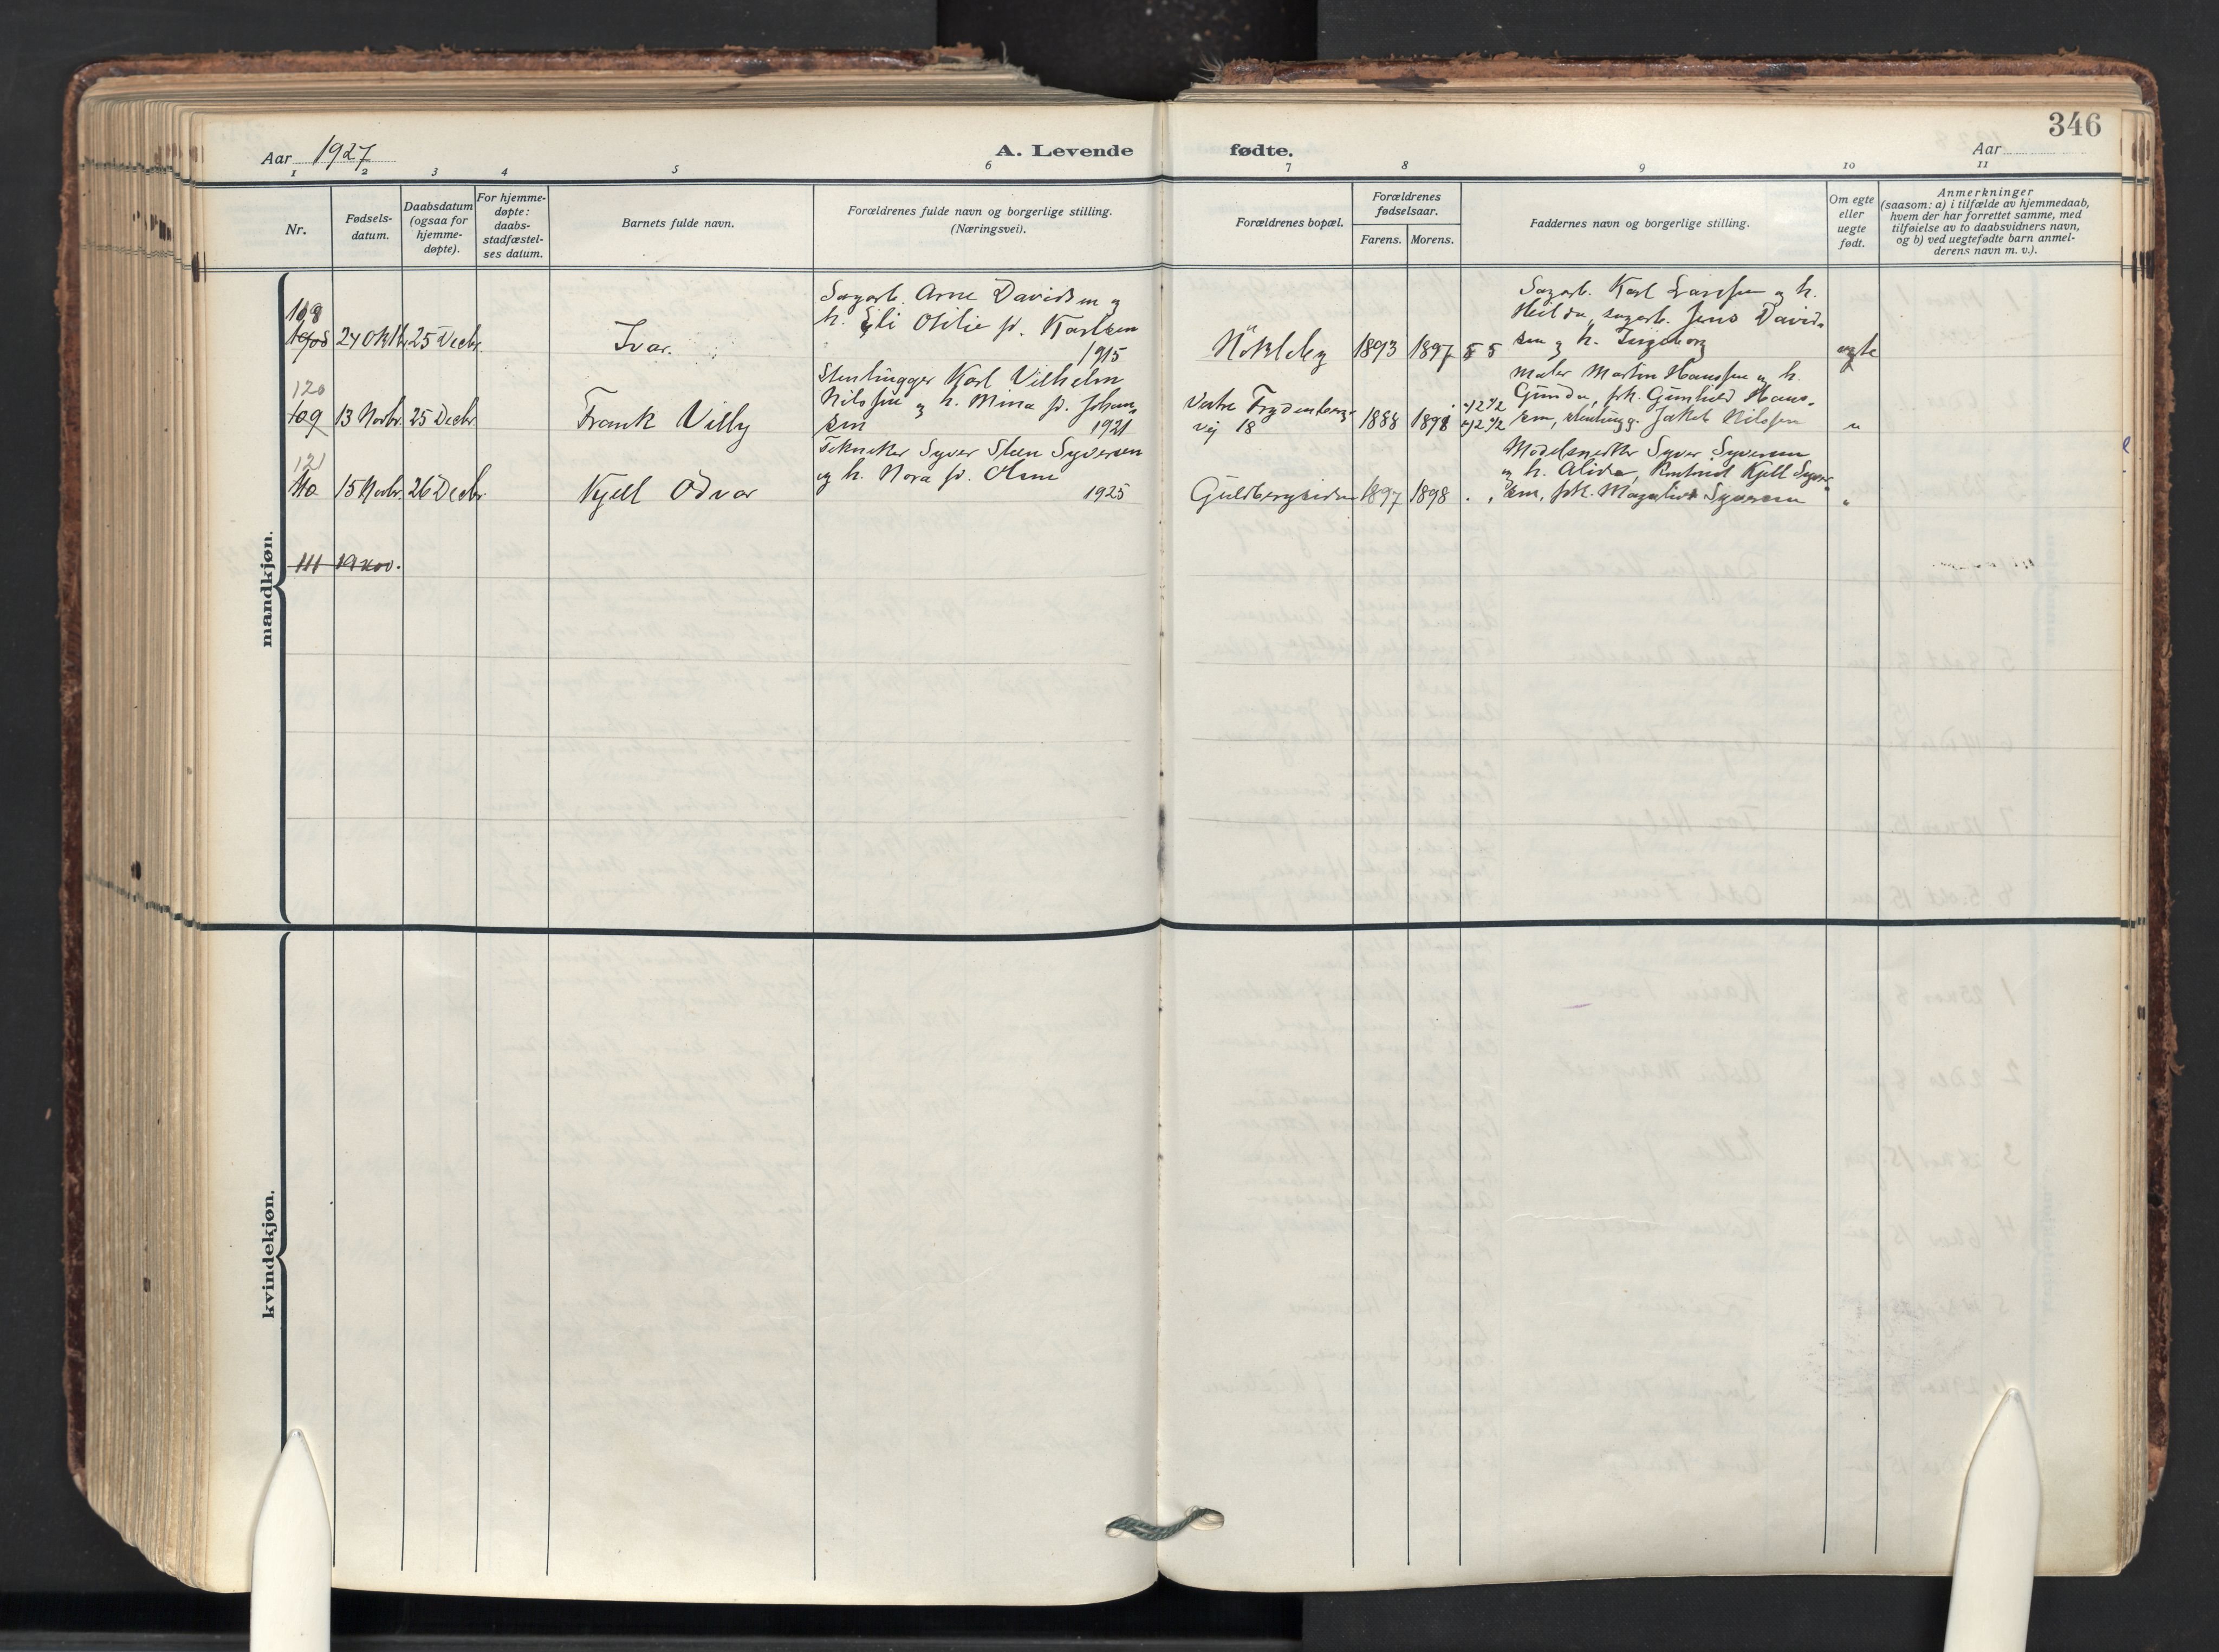 346
Aar 1927
A. Levende
fødte.
Aar
1 2 3 4 5 6 7 8 9 10 11
Nr.
Fødsels-
datum.
Daabsdatum
(ogsaa for
hjemme-
døpte).
For hjemme-
døpte:
daabs-
stadfæstel-
ses datum.
Barnets fulde navn.
Forældrenes fulde navn og borgerlige stilling.
(Næringsvei).
Forældrenes bopæl.
Forældrenes
fødselsaar.
Farens. Morens.
Faddernes navn og borgerlige stilling.
Om egte
eller
uegte
født.
Anmerkninger
(saasom: a) i tilfælde av hjemmedaab,
hvem der har forrettet samme, med
tilføielse av to daabsvidners navn,
og b) ved uegtefødte barn anmel-
derens navn m. v.).
mandkjøn.
24 Oktbr. 25 Decbr.
Ivar.
Sagarb. Arne Davidsen og
h. Eli Otilie f. Karlsen
1915
Nökleby
1893 1897
5 5
Sagarb. Karl Larssen og h.
Hilda, sagarb. Jens David-
sen og h. Ingeborg
egte
120
109
13 Novbr. 25 Decbr.
Frank Villy
Stenhugger Karl Vilhelm
Nilssen og h. Mina f. Johan-
sen 1921
Vestre Frydenberg-
vej 18
1888 1898
Maler Martin Hanssen og h.
Gunda, frk. Gunhild Hans-
sen, stenhugg. Jakob Nilssen
"
121
110
15 Novbr. 26 Decbr.
Kjell Odvar
Tekniker Syver Steen Syversen
og h. Nora f. Olsen
1925
Guldbergsiden
1897 1898
Modelsnedker Syver Syversen
og h. Alida, Kjell Syver-
sen, frk. Syversen
"
111 19 nov.
kvindekjøn.